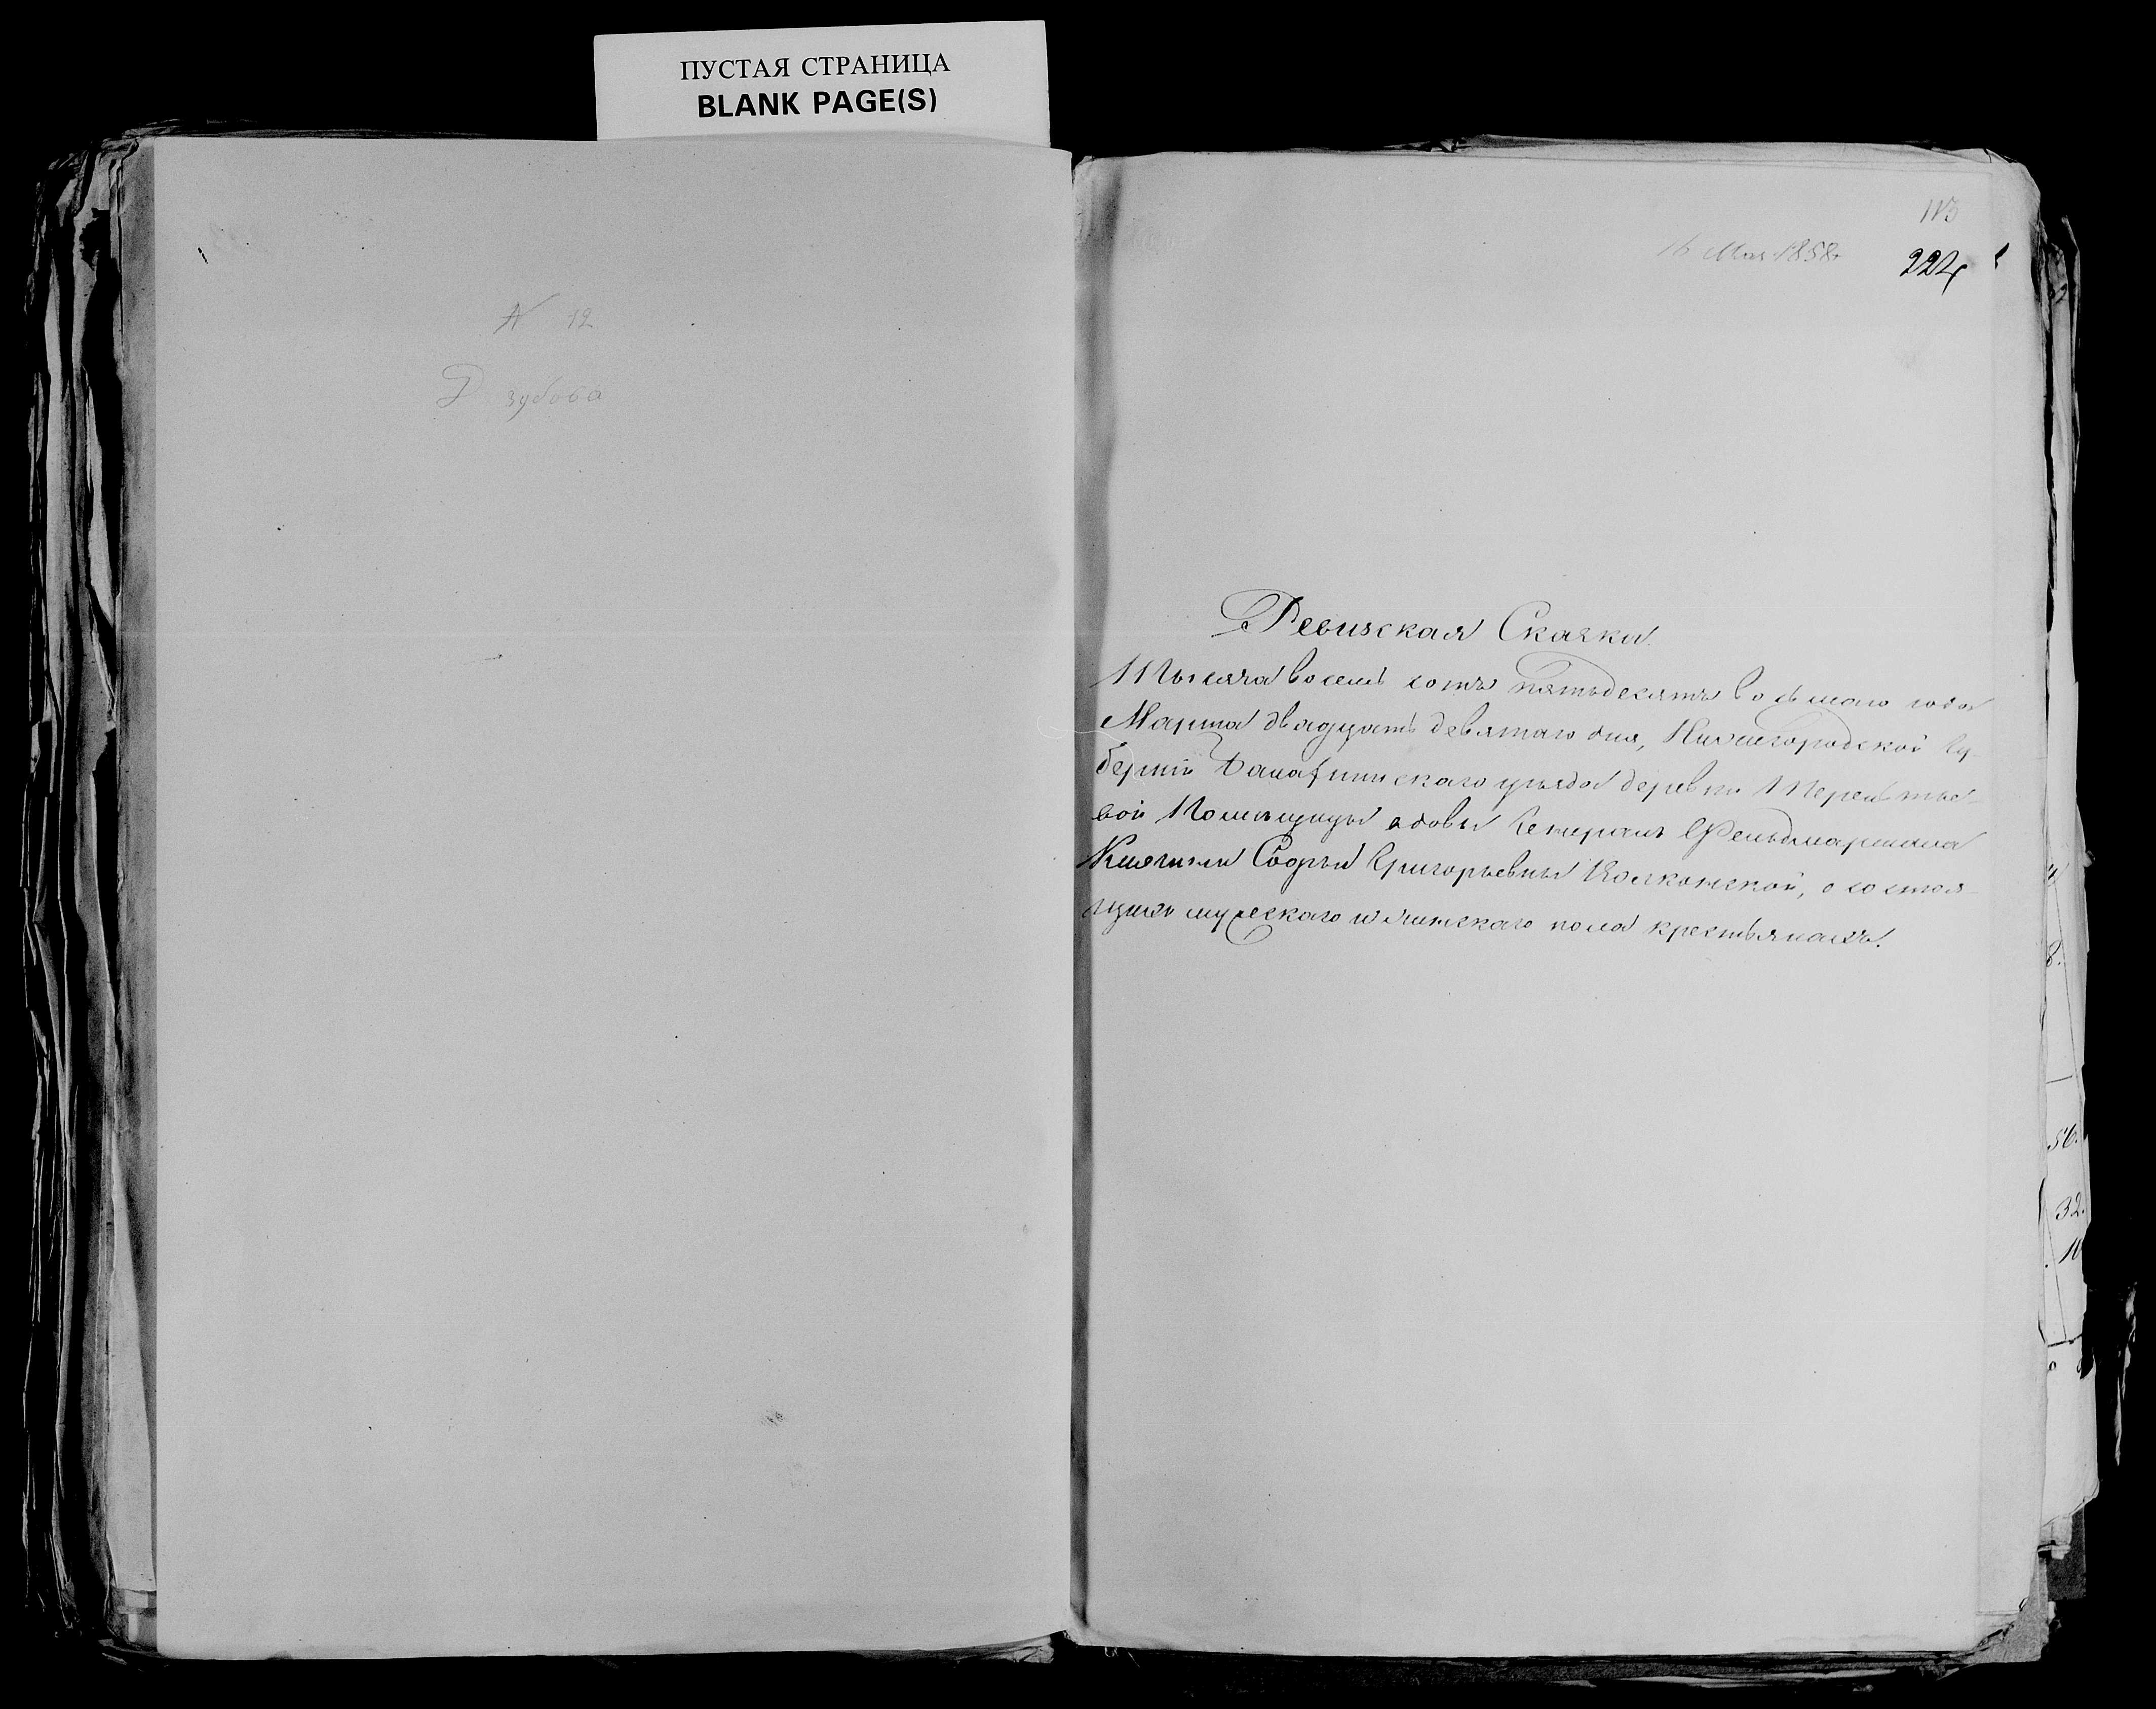 ПУСТАЯ СТРАНИЦА
BLANK PAGE(S)
N 12
Д зубова
113
16 Мая 1858
224
Ревизская Сказка
Тысяча восемь сотъ пятьдесятъ восьмаго года
Марта двадцать девятаго дня, Нижегородской Гу-
берніи Балахнинскаго уѣзда деревни
вой Помѣщицы вдовы Генералъ Фельдмаршала
Княгини Софьи Григорьевны Волконской, о состоя-
щихъ мужескаго и женскаго пола крестьянахъ.
8.
56.
32.